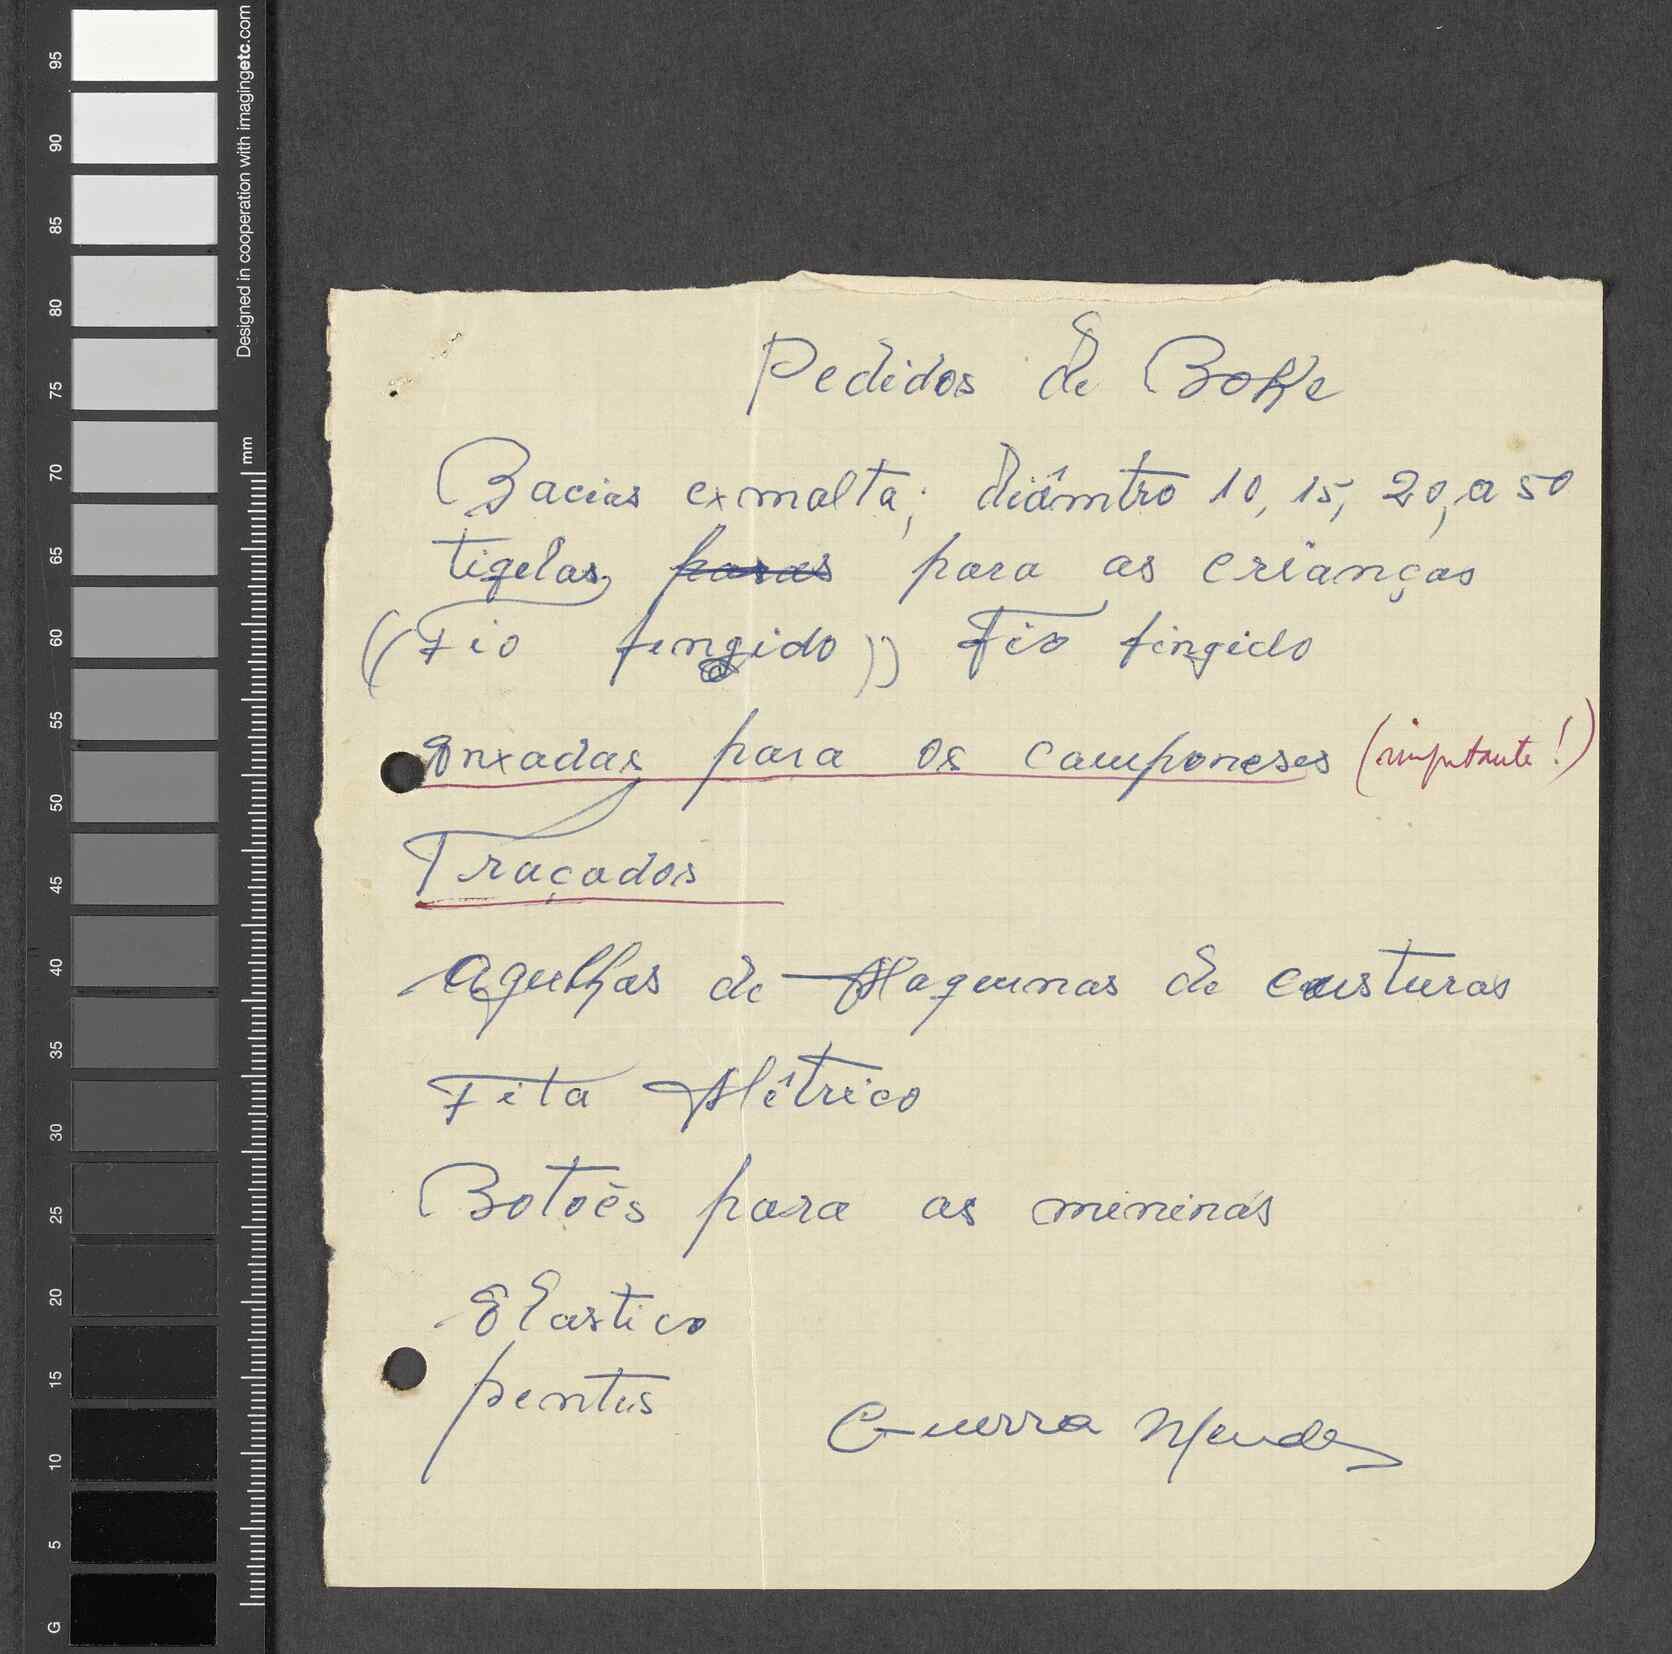 Pedidos de Boke
Bacias exmalta; diâmtro 10, 15, 20, a 50
tigelas paras para as crianças
((Fio fengido)) Fio fingido
Enxadas para os camponeses (importante!)
Traçados
Agulhas de Maquinas de custuras
Fita Métrico
Botoẽs para as mininas
Elastico
pentes
Guerra Mendes
95
90
85
80
75
70
65
60
55
50
45
40
35
30
25
20
15
10
5
G
Designed in cooperation with imagingetc.com
mm